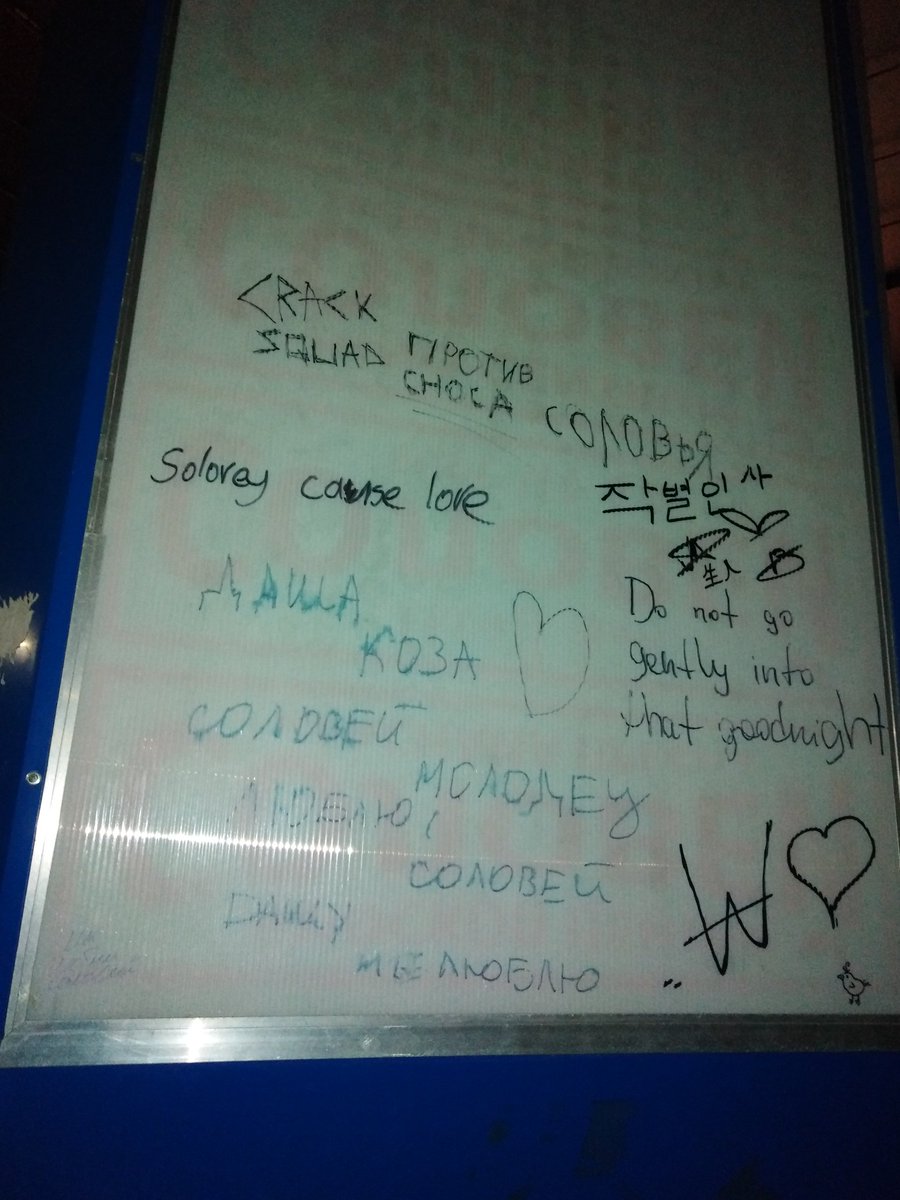 CRACK
SQUAD ПРОТИВ
СНОСА
СОЛОВЬЯ
Solovey cause love
작별인사
Do not go
gently into
that goodnight
ДАША
КОЗА
СОЛОВЕЙ
МОЛОДЕЦ
ЛЮБЛЮ,
СОЛОВЕЙ
ДАШУ
НЕ ЛЮБЛЮ
W